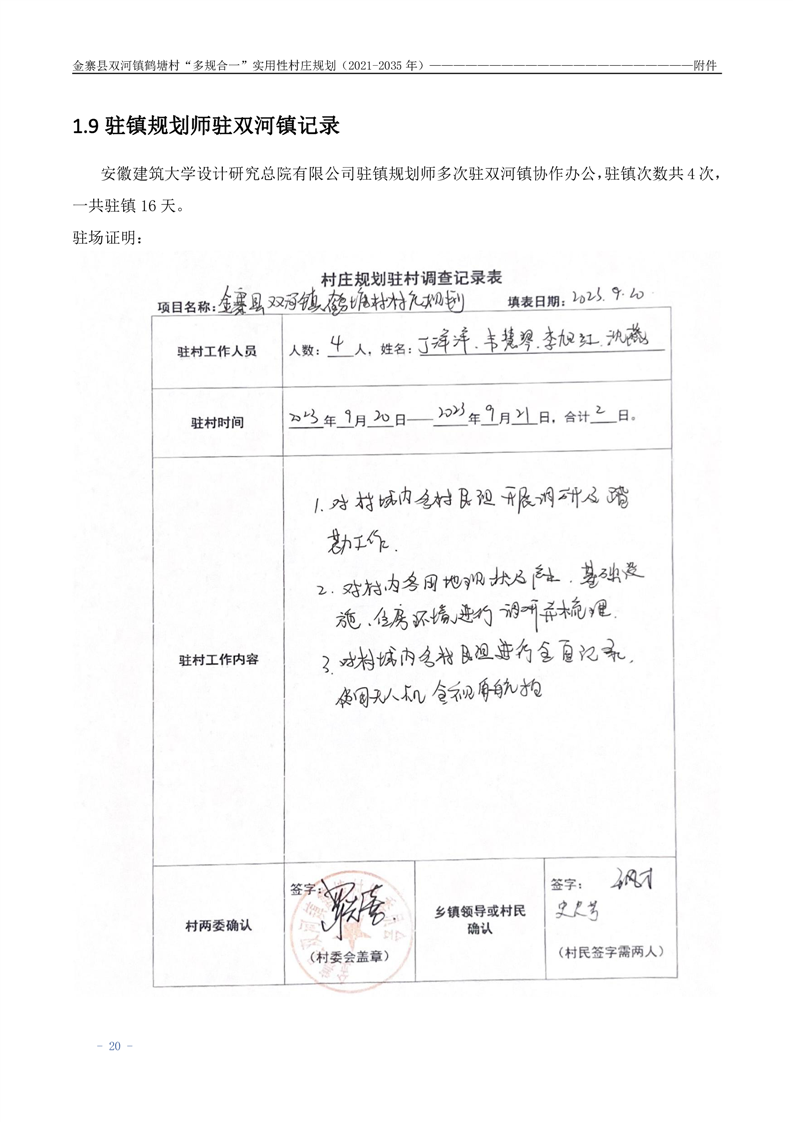 金寨县双河镇鹤塘村“多规合一”实用性村庄规划（2021-2035 年）——————————————————————附件
1.9 驻镇规划师驻双河镇记录
安徽建筑大学设计研究总院有限公司驻镇规划师多次驻双河镇协作办公，驻镇次数共 4 次，
一共驻镇 16 天。
驻场证明：
村庄规划驻村调查记录表
项目名称：金寨县双河镇鹤塘村村庄规划 填表日期：2023.9.20
驻村工作人员 人数：4人，姓名：丁洋洋、韦慧琴、李旭红、沈燕
驻村时间 2023年9月20日——2023年9月21日，合计2日。
驻村工作内容
1. 对村域内各村民组开展调研及踏
勘工作.
2. 对村内各用地现状及产业、基础设
施、住房环境进行调研并梳理.
3. 对村域内各村民组进行全面记录,
使用无人机全视角航拍
村两委确认 签字：
（村委会盖章）
乡镇领导或村民
确认
签字：
（村民签字需两人）
- 20 -